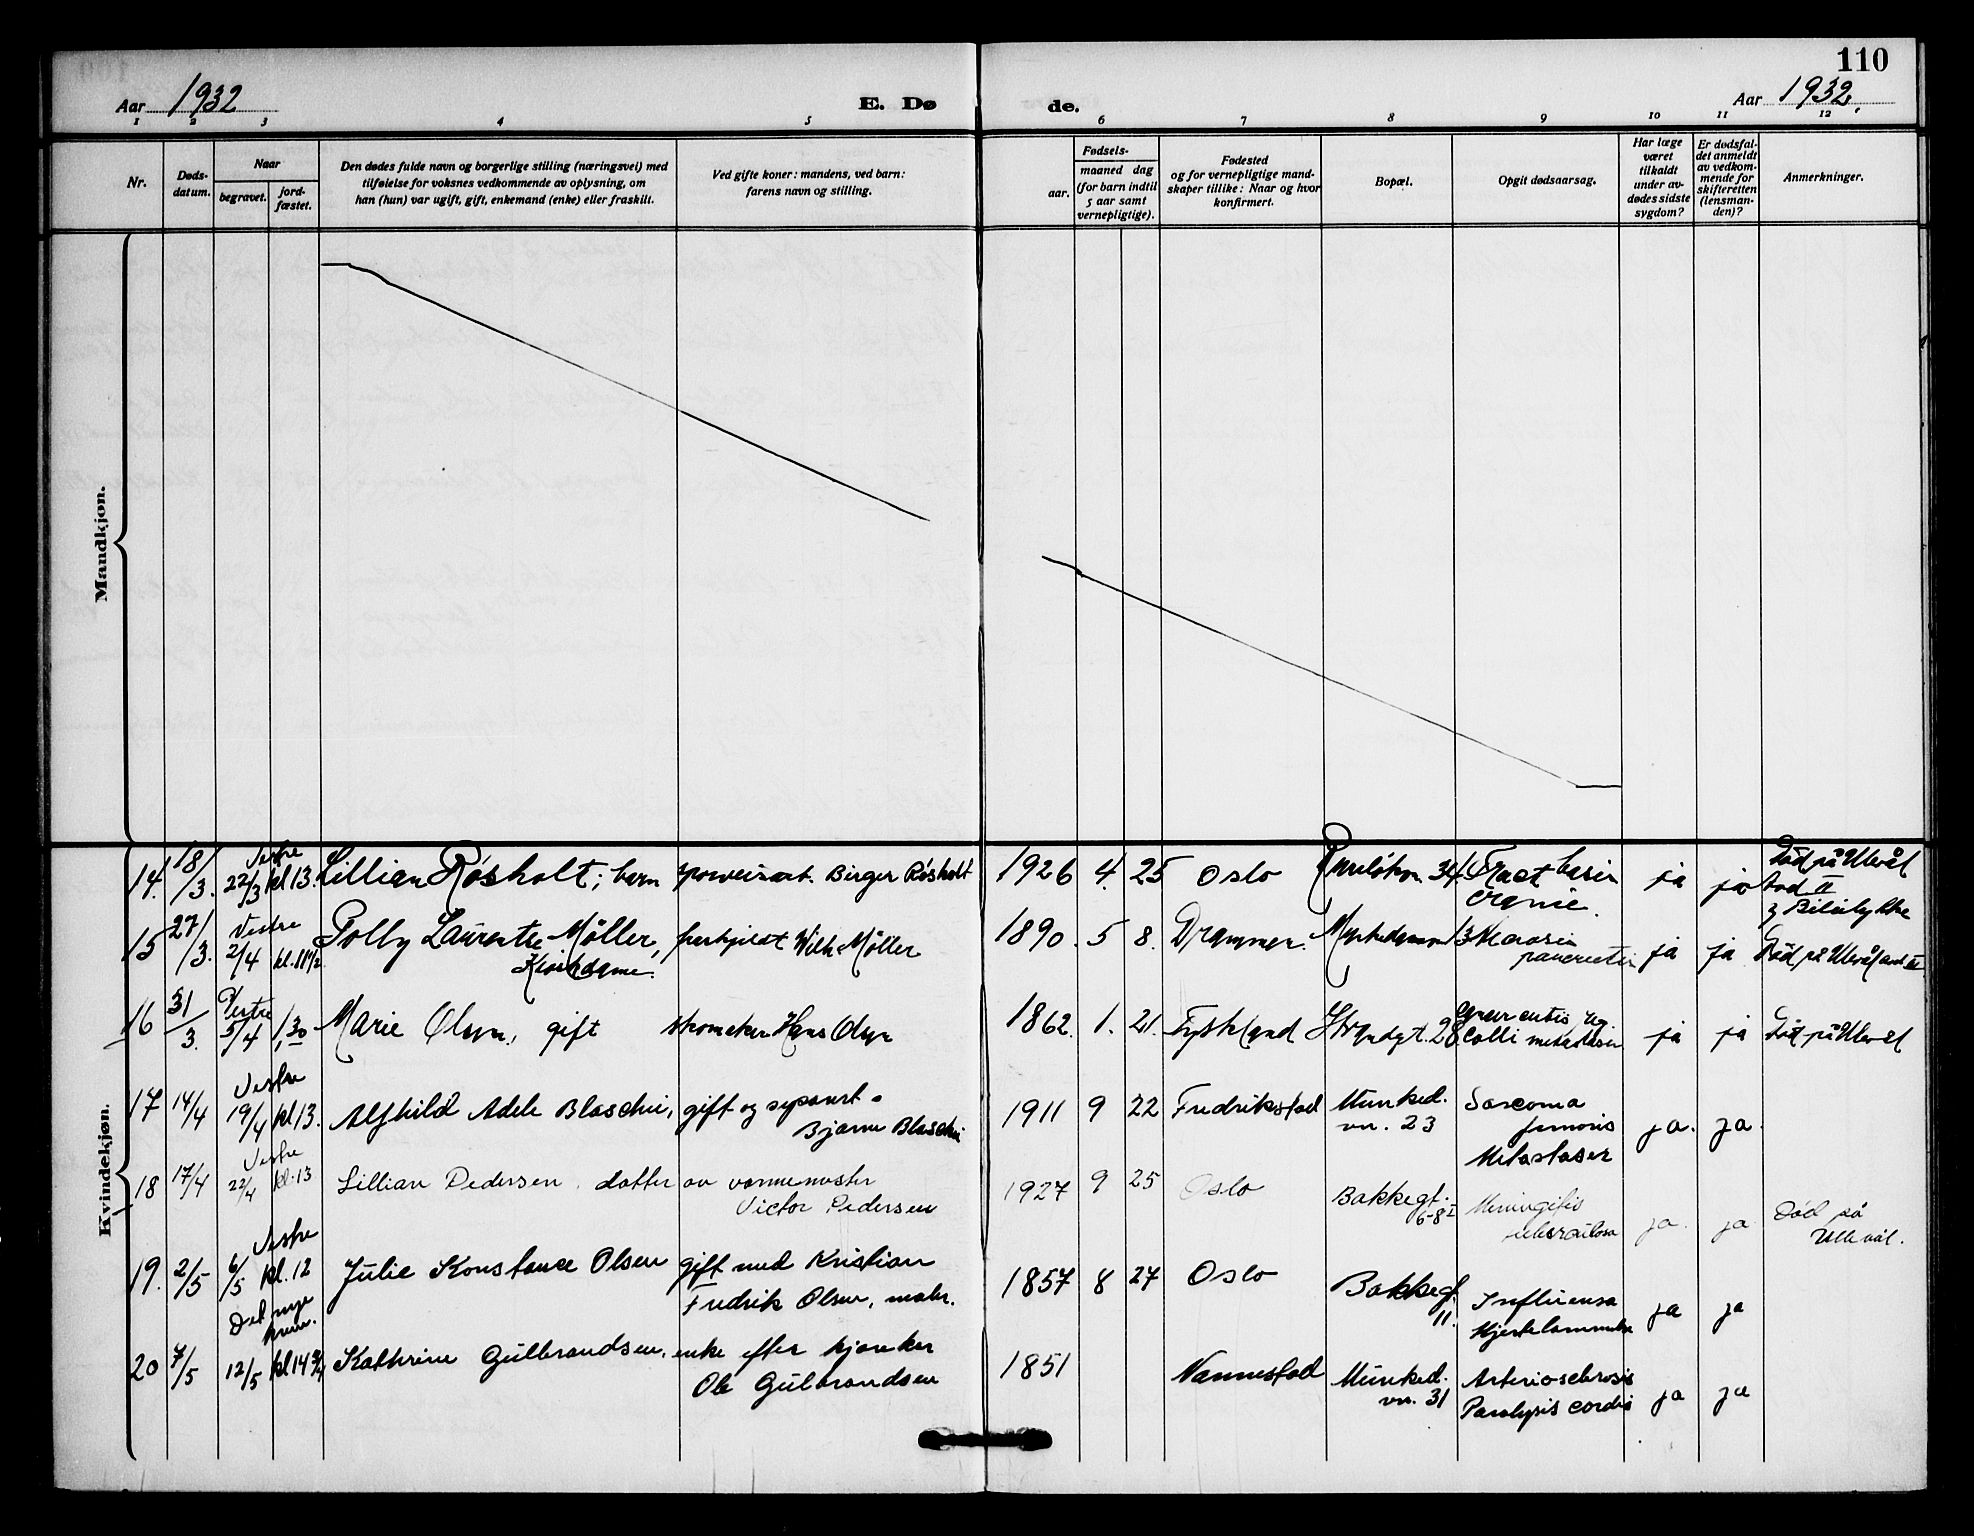 110
Aar 1932
E. Dø
de.
Aar 1932.
1 2 3 4 5 6 7 8 9 10 11 12
Nr.
Døds-
datum.
Naar
begravet.
jord-
fæstet.
Den dødes fulde navn og borgerlige stilling (næringsvei) med
tilføielse for voksnes vedkommende av oplysning, om
han (hun) var ugift, gift, enkemand (enke) eller fraskilt.
Ved gifte koner: mandens, ved barn:
farens navn og stilling.
Fødsels-
aar.
maaned dag
(for barn indtil
5 aar samt
vernepligtige).
Fødested
og for vernepligtige mand-
skaper tillike: Naar og hvor
konfirmert.
Bopæl.
Opgit dødsaarsag.
Har læge
været
tilkaldt
under av-
dødes sidste
sygdom?
Er dødsfal-
det anmeldt
av vedkom-
mende for
skifteretten
(lensman-
den)?
Anmerkninger.
Mandkjøn.
Kvindekjøn.
14. 18/3. Vestre 22/3 kl 13. Lillian Røsholt; barn Birger Røsholt 1926 4. 25 Oslo 34 Fract. basis
cranie. ja ja Død på Ullevål
avd II
15 27/3. Vestre 2/4 kl. 11 1/2 Polly Laurentse Møller, fraskildt Wilh. Møller 1890. 5 8. Drammen. 13 ja ja Død på Ullevål avd III
Kioskdame.
16 31/3. Vestre 5/4 1,30 Marie Olsen, gift skomaker Hans Olsen 1862. 1. 21. Tyskland Strandgt. 28 colli metastaser ja ja Død på Ullevål
17 14/4 Vestre 19/4 kl 13. Alfhild Adele Blaschi, gift og separert. 1911 9 22 Fredrikstad Munked.
vn. 23 Sarcoma
femoris
Metastaser ja. ja.
Bjarne Blaschi
18 17/4 Vestre 22/4 kl. 13 Lillian Pedersen, datter av varmemester
Victor Pedersen 1927 9 25 Oslo Bakkegt.
6-8 I Meningitis
tuberculosa ja. ja Død på
Ullevål.
19. 2/5 Vestre 6/5 kl. 12 Julie Konstance Olsen gift med Kristian
Fredrik Olsen, maler. 1857 8 27 Oslo Bakkegt.
11. Influensa
Hjertelammelse ja ja
20 7/5 Det nye
krem. 12/5 kl 14 Kathrine Gulbrandsen, enke efter
Ole Gulbrandsen 1851 Nannestad Munked.
vn. 31 Arteriosclerosis
Paralysis cordis ja ja